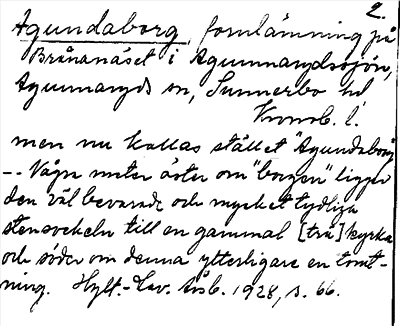 2.
Agundaborg, fornlämning på
Brånanäset i Agunnarydssjön,
Agunnaryds sn, Sunnerbo hd
Kronob. l.
men nu kallas stället "Agundaborg"
-- Några meter öster om "borgen" ligger
den väl bevarade och mycket tydliga
stensockeln till en gammal [trä] kyrka
och söder om denna ytterligare en tomt-
ning. Hylt.-Cav. Årsb. 1928, s. 66.